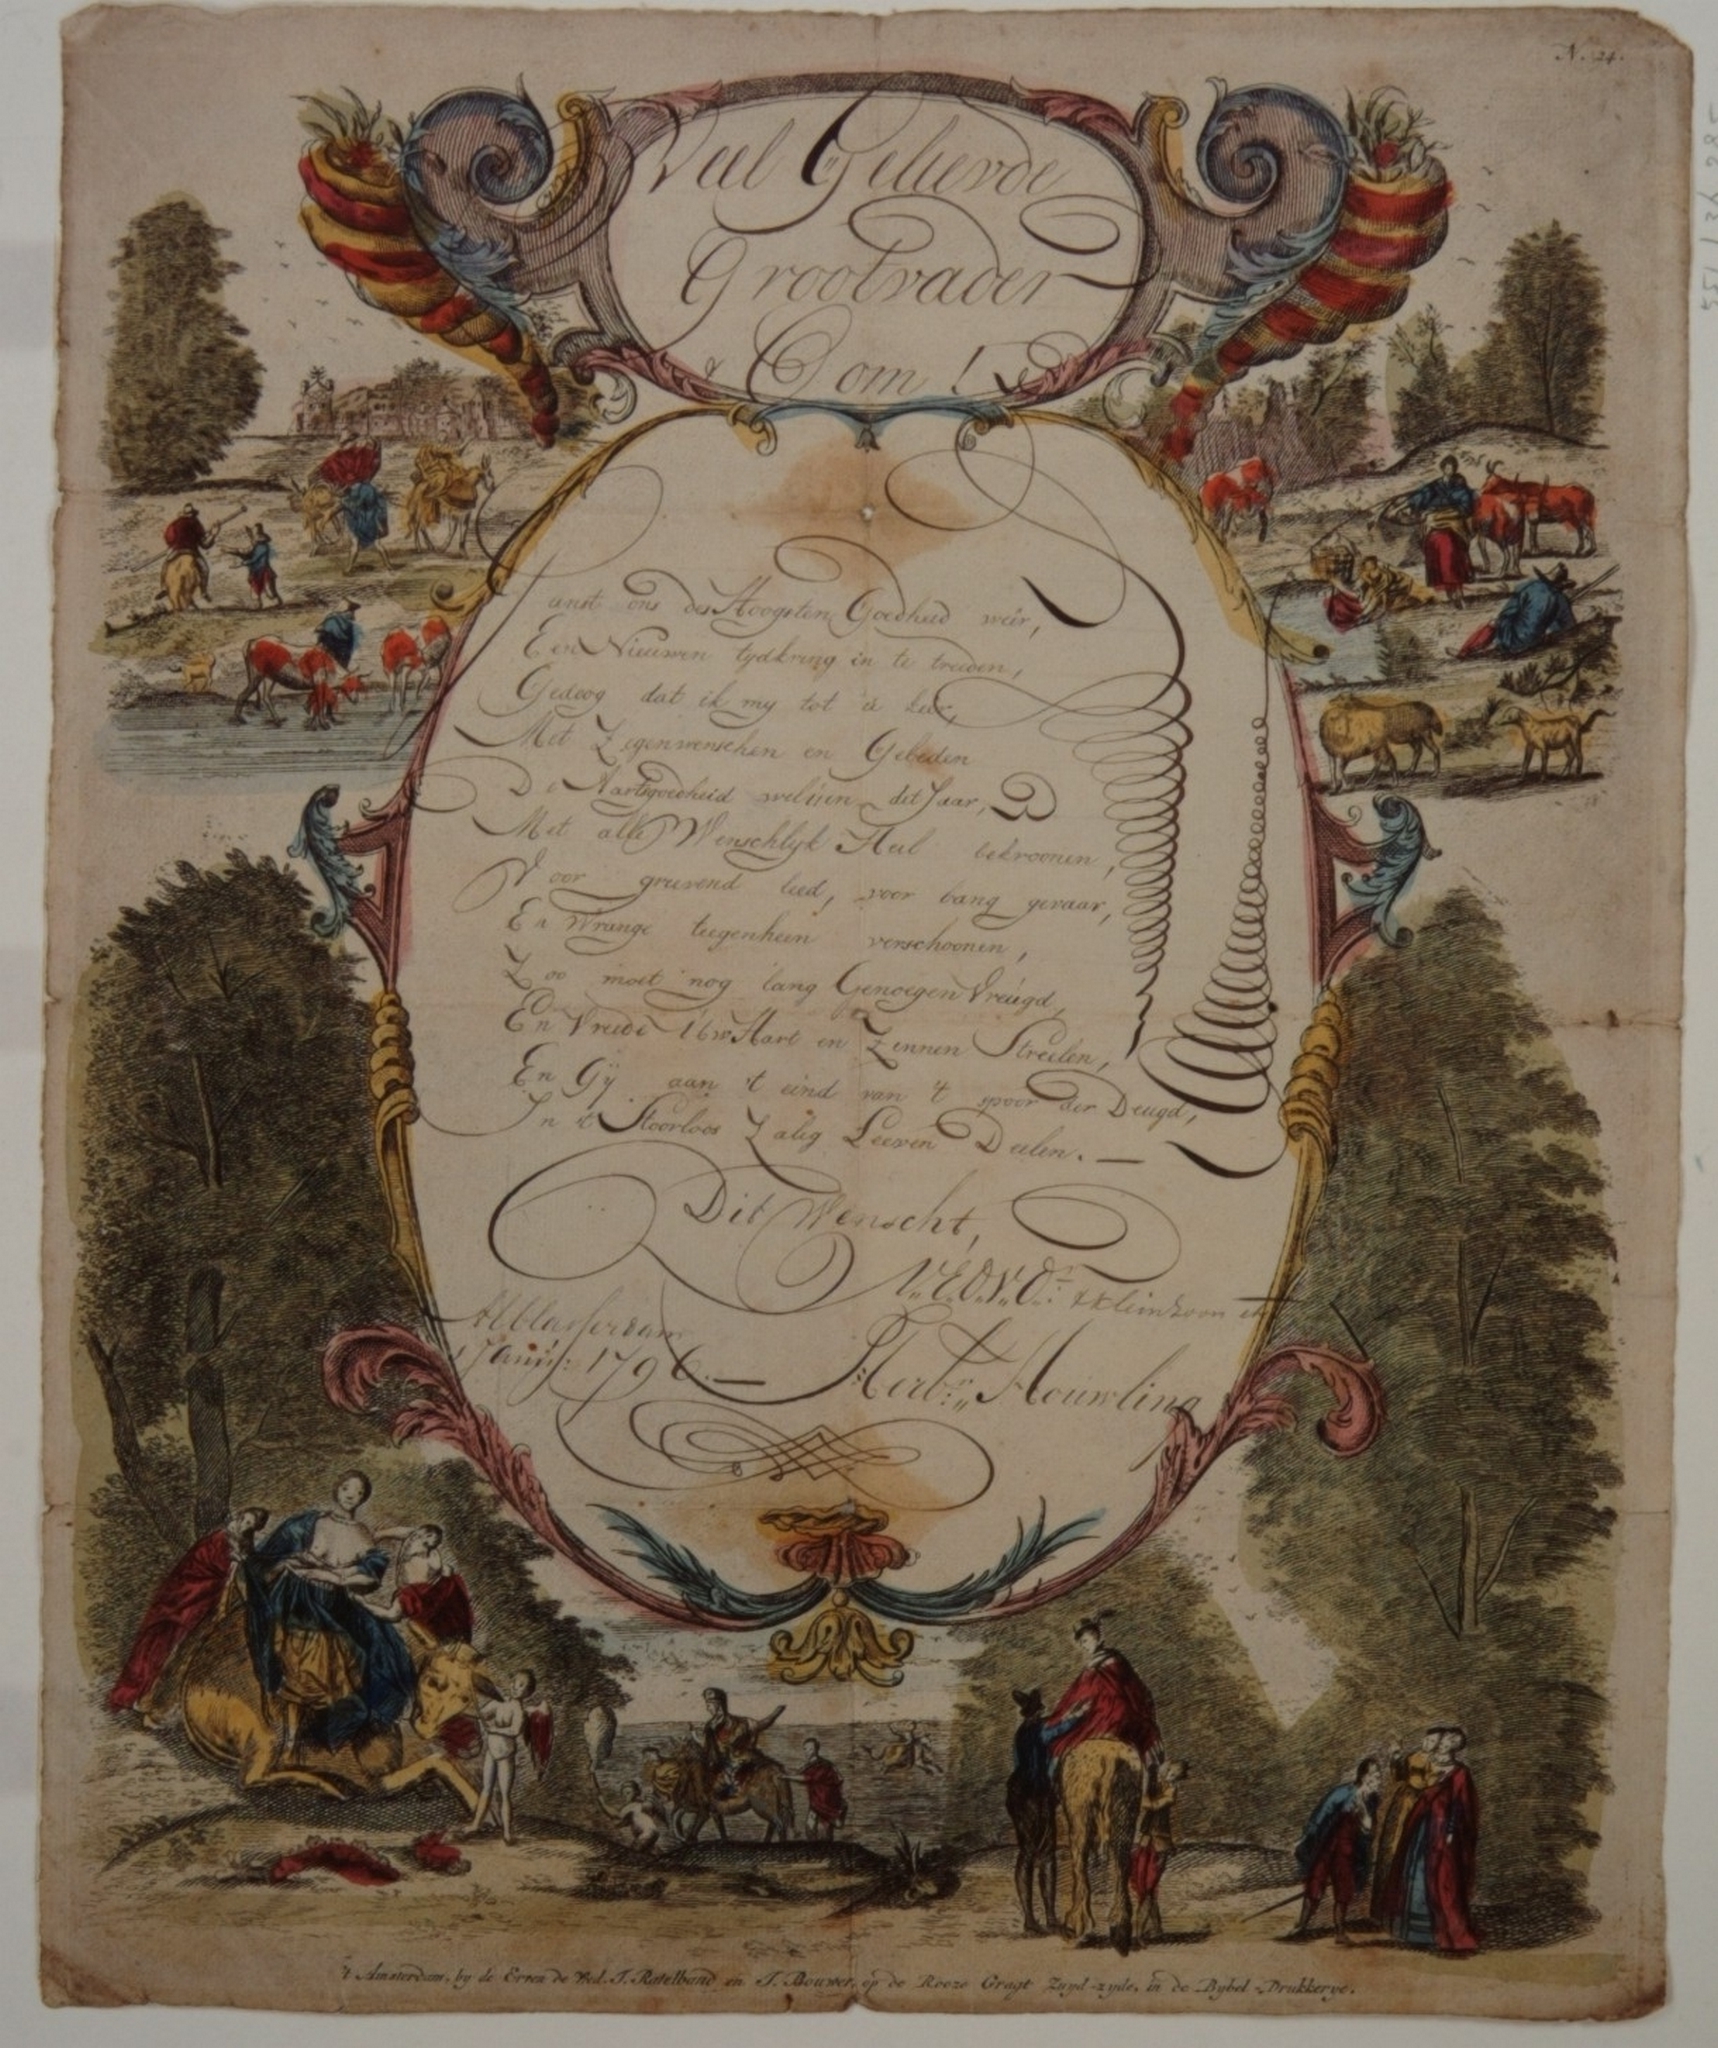 N. 24.
Veel Geliefde
Grootvader
& Oom!
Gunst ons des Hoogsten Goedheid weêr,
Een Nieuwen tydkring in te treeden,
Gedoog dat ik my tot u keer,
Met Zegenwenschen en Gebeden
De Aartsgoedheid wil in dit Jaar,
Met alle Wenschlyk Heil bekroonen,
Voor grievend leed, voor bang gevaar,
En Wrange teegenheen verschoonen,
Zoo moet nog lang Genoegen Vreugd,
En Vrede Uw Hart en Zennen Streelen,
En Gÿ aan 't eind van 't spoor der Deugd,
In 't Stoorloos Zalig Leeven Deelen. —
Dit Wenscht,
kleinzoon en
Alblasserdam
1796. — Houwling
't Amsterdam, by de Erven de Wed. J. Ratelband en J. Bouwer, op de Rooze Gragt Zuyd-zyde, in de Bybel-Drukkerye.